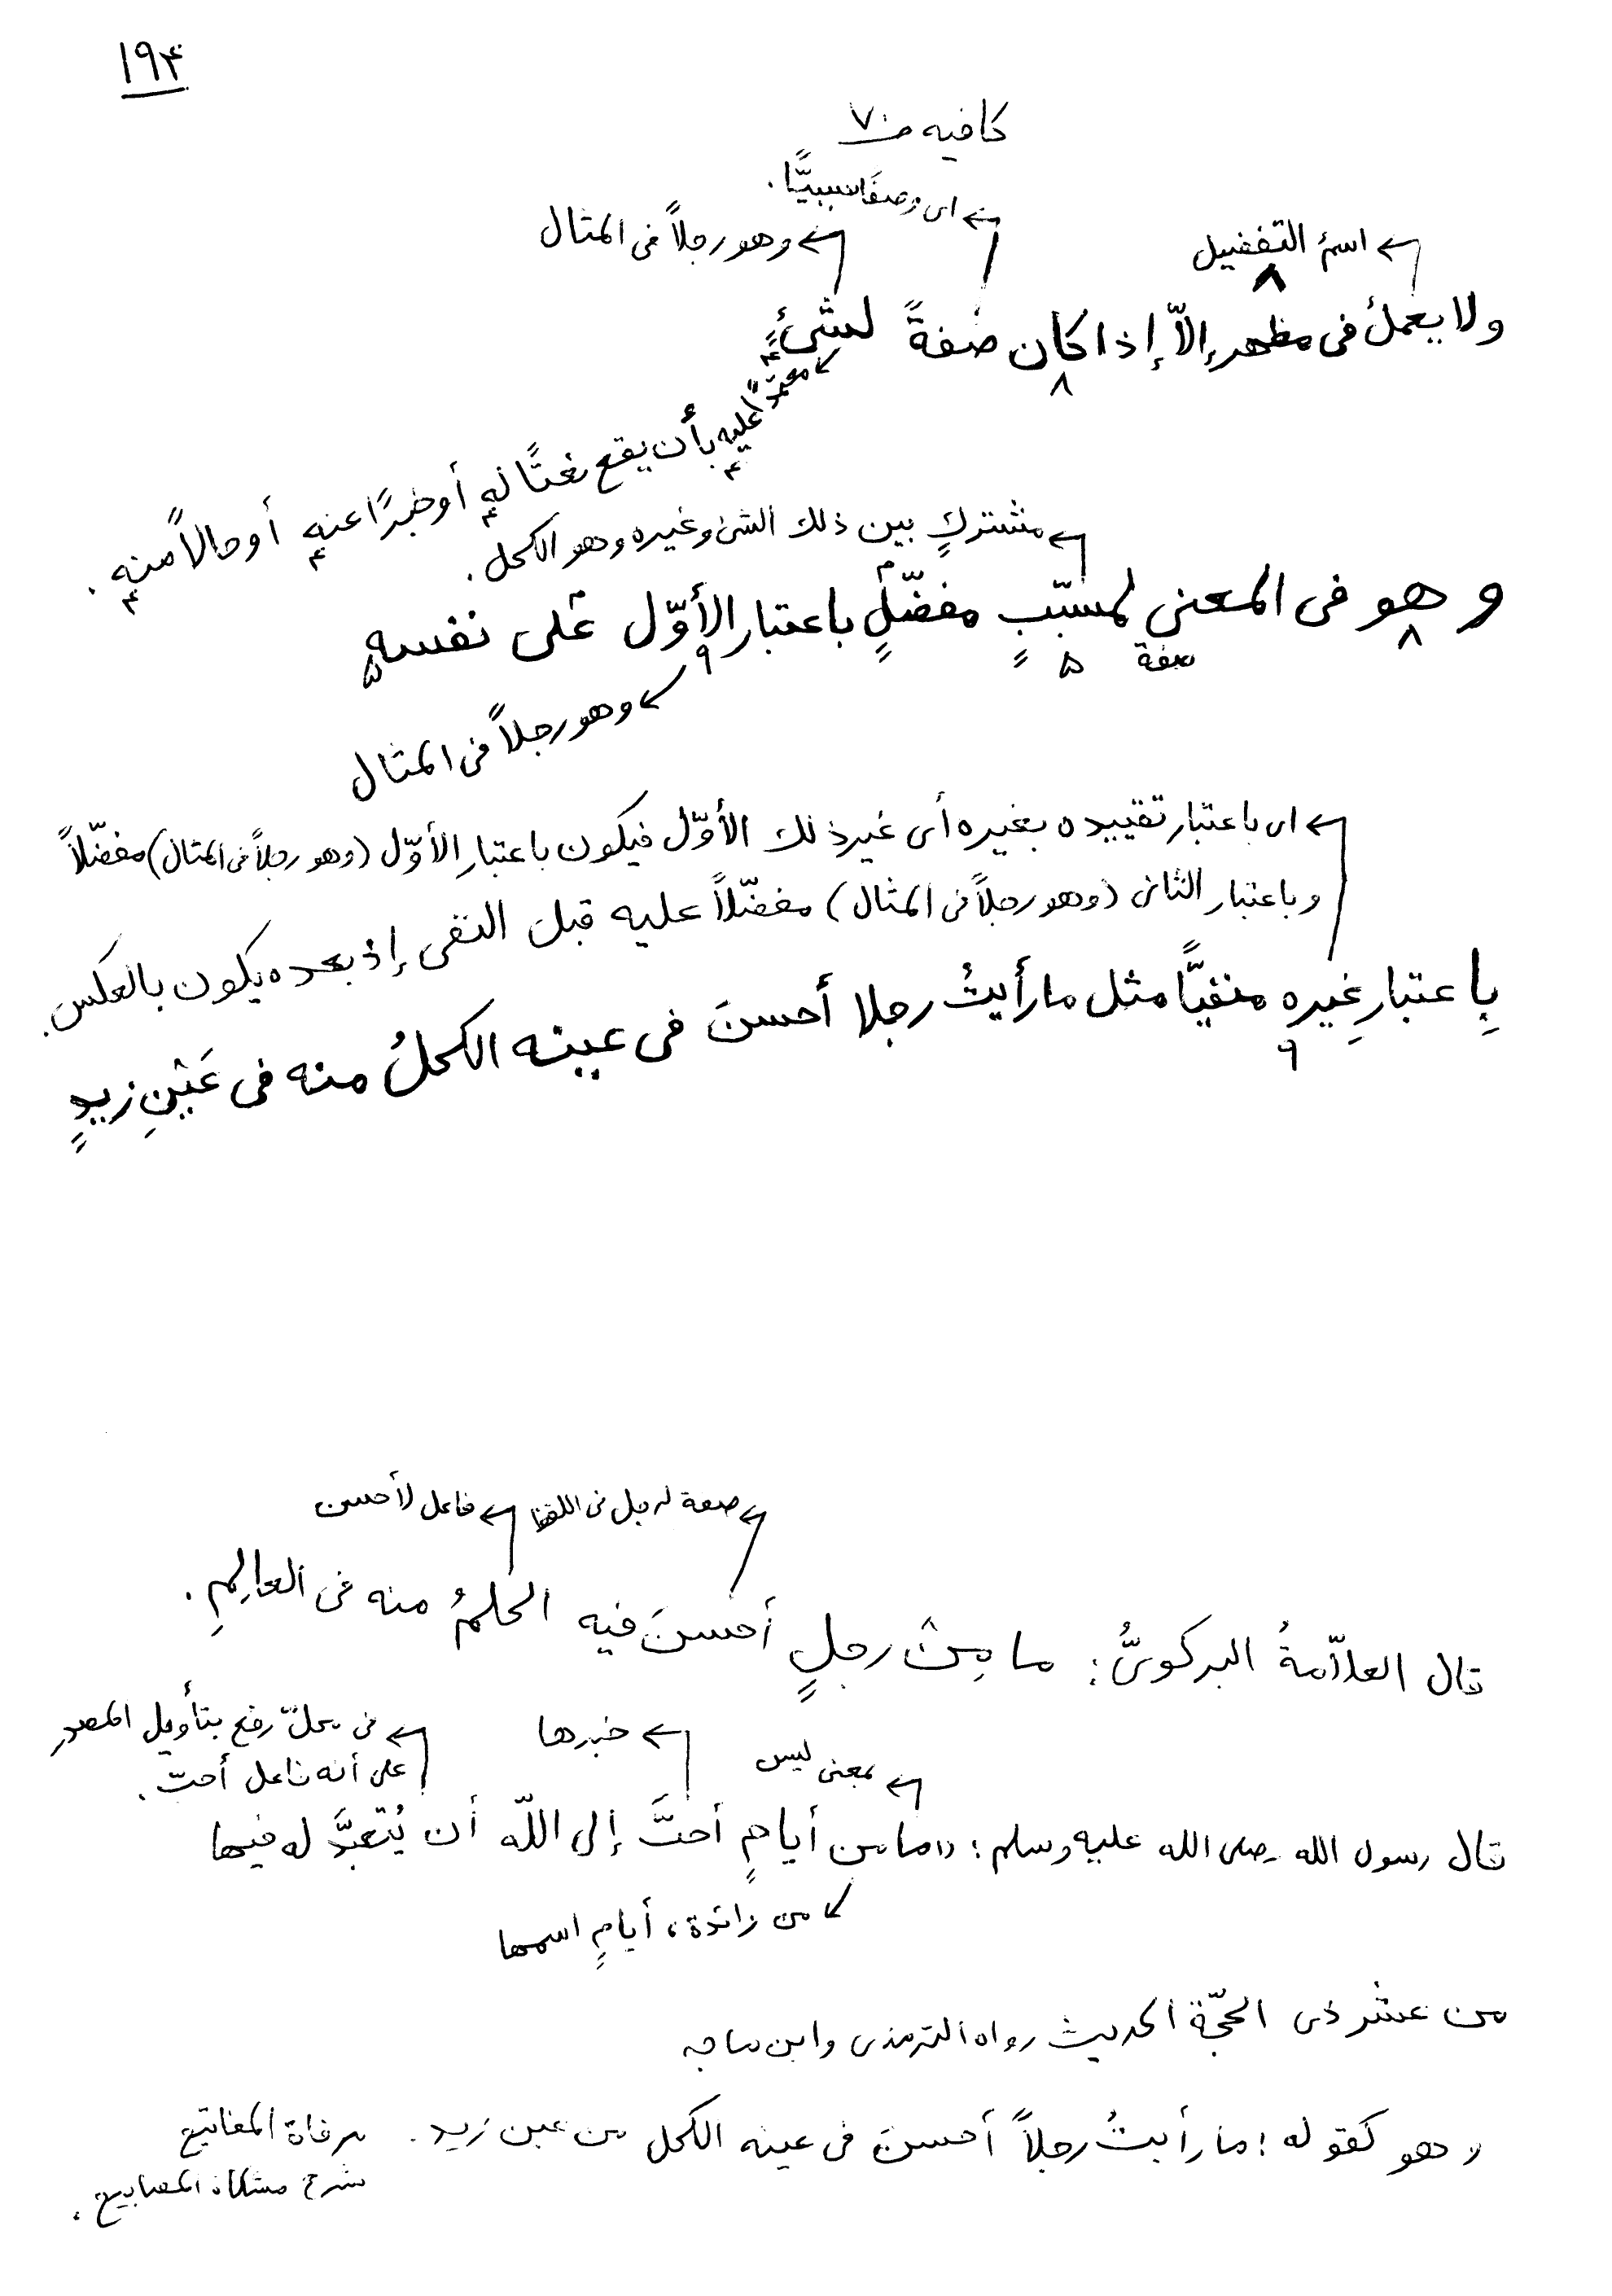 ١٩٤
كافيه ص ٧٠
اى وصفًا سببيًّا.
وهو رجلاً فى المثال
اسمُ التفضيل
ولا يعملُ فى مظهرٍ إلاّ إذا كان صفةً لشئٍ
معتمدًا عليه بأن يقع نعتًا له أو خبرًا عنه أو حالاً منه .
مشتركٍ بين ذلك الشئ وغيره وهو الكحل .
و هو فى المعنى لمسبّبٍ مفضّلٍ باعتبار الأوّل على نفسه
صفة
وهو رجلاً فى المثال
اى باعتبار تقييده بغيره أى غير ذلك الأوّل فيكون باعتبارِ الأوّل (وهو رجلاً فى المثال) مفضّلاً
وباعتبار الثانى (وهو رجلاً فى المثال) مفضّلاً عليه قبل النفى إذ بعده يكون بالعكس .
بِاعتبارِ غيرِه منفيًّا مثل ما رأيتُ رجلا أحسنَ فى عينه الكحلُ منه فى عَيْنِ زيدٍ
صفة لرجل فى اللفظ
فاعل لأحسن
قال العلاّمةُ البركوىُّ: ما مِنْ رجلٍ أحسنَ فيه الحلمُ منه فى العالِمِ .
فى محلّ رفع بتأويل المصدر
على أنه فاعل أحبّ .
خبرها
بمعنى ليس
قال رسول الله صلى الله عليه وسلم : «ما من أيامٍ أحبَّ إلى اللّه أن يُتعبَّدَ له فيها
من زائدة، أيامٍ اسمها
من عشر ذى الحجّة الحديث رواه الترمذى وابن ماجه
وهو كقوله : ما رأيتُ رجلاً أحسنَ فى عينه الكحل من عين زيد . مرقاة المفاتيح
شرح مشكاة المصابيح .